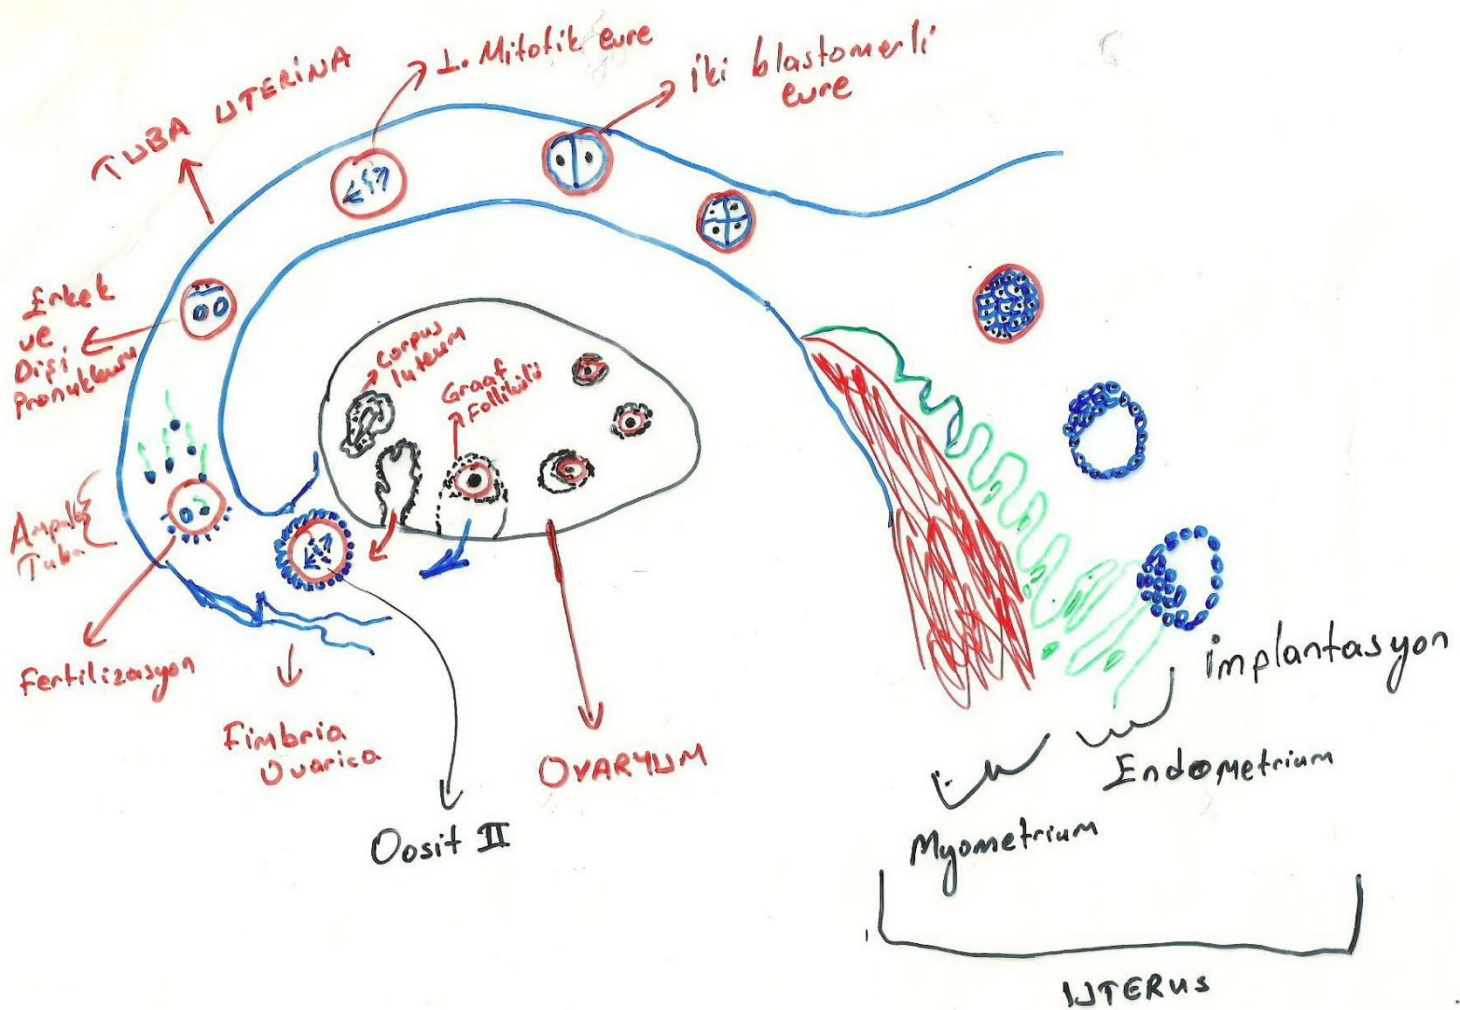 TUBA UTERİNA
1. Mitotik evre
İki blastomerli
evre
Erkek
ve
Dişi
Pronukleusu
Corpus
luteum
Graaf
Follikülü
Ampulla
Tuba
Fertilizasyon
Fimbria
Ovarica
Oosit II
OVARYUM
implantasyon
Endometrium
Myometrium
UTERUS